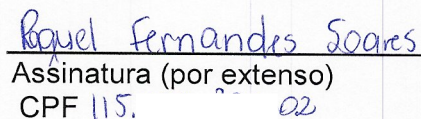 Raquel Fernandes Soares
Assinatura (por extenso)
CPF 115. 02